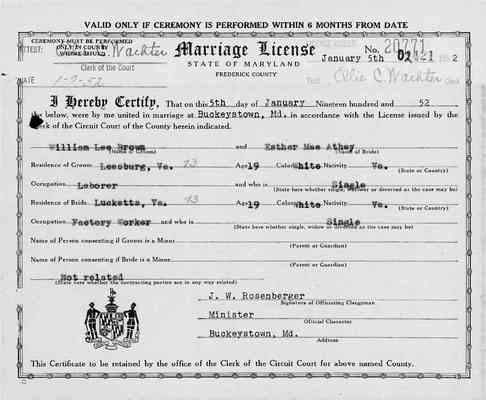 VALID ONLY IF CEREMONY IS PERFORMED WITHIN 6 MONTHS FROM DATE
CEREMONY MUST BE PERFORMED
ONLY IN COUNTY
WHERE ISSUED
ATTEST: Wachter
Clerk of the Court
DATE 1-9-52
Marriage License
STATE OF MARYLAND
FREDERICK COUNTY
No. 20771
January 5th 1952
Ellis C. Wachter Clerk
I Hereby Certify, That on this 5th day of January Nineteen hundred and 52
below, were by me united in marriage at Buckeystown, Md. in accordance with the License issued by the
Clerk of the Circuit Court of the County herein indicated.
William Lee Brown and Esther Mae Athey
(Name of Groom) (Name of Bride)
Residence of Groom Leesburg, Va. 13 Age 19 Color White Nativity Va.
(State or Country)
Occupation Laborer and who is Single
(State here whether single, widower or divorced as the case may be)
Residence of Bride Lucketts, Va. 13 Age 19 Color White Nativity Va.
(State or Country)
Occupation Factory Worker and who is Single
(State here whether single, widow or divorced as the case may be)
Name of Person consenting if Groom is a Minor
(Parent or Guardian)
Name of Person consenting if Bride is a Minor
(Parent or Guardian)
Not related
(State here whether the contracting parties are in any way related)
J. W. Rosenberger
Signature of Officiating Clergyman
Minister
Official Character
Buckeystown, Md.
Address
This Certificate to be retained by the office of the Clerk of the Circuit Court for above named County.